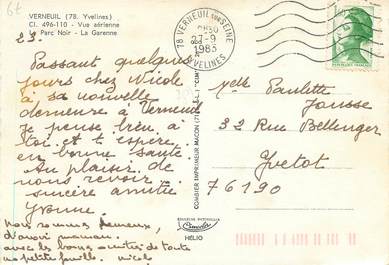 67
VERNEUIL (78. Yvelines)
Cl. 496-110 - Vue aérienne
Le Parc Noir - La Garenne
23.
Passant quelques
jours chez Nicole
à sa nouvelle
demeure à Verneuil
je pense bien à
toi et t'espère
en bonne santé.
Au plaisir de
nous revoir
sincère amitié
Yvonne.
Nous sommes heureux,
d'avoir maman.
avec les bons amitiés de toute
ma petite famille. Nicole
COMBIER IMPRIMEUR MACON
COULEURS NATURELLES
Cimcolor
HELIO
78 VERNEUIL SUR SEINE
27-9
1983
YVELINES
Melle Paulette
Jousse
32 Rue Bellenger
Yvetot
76190